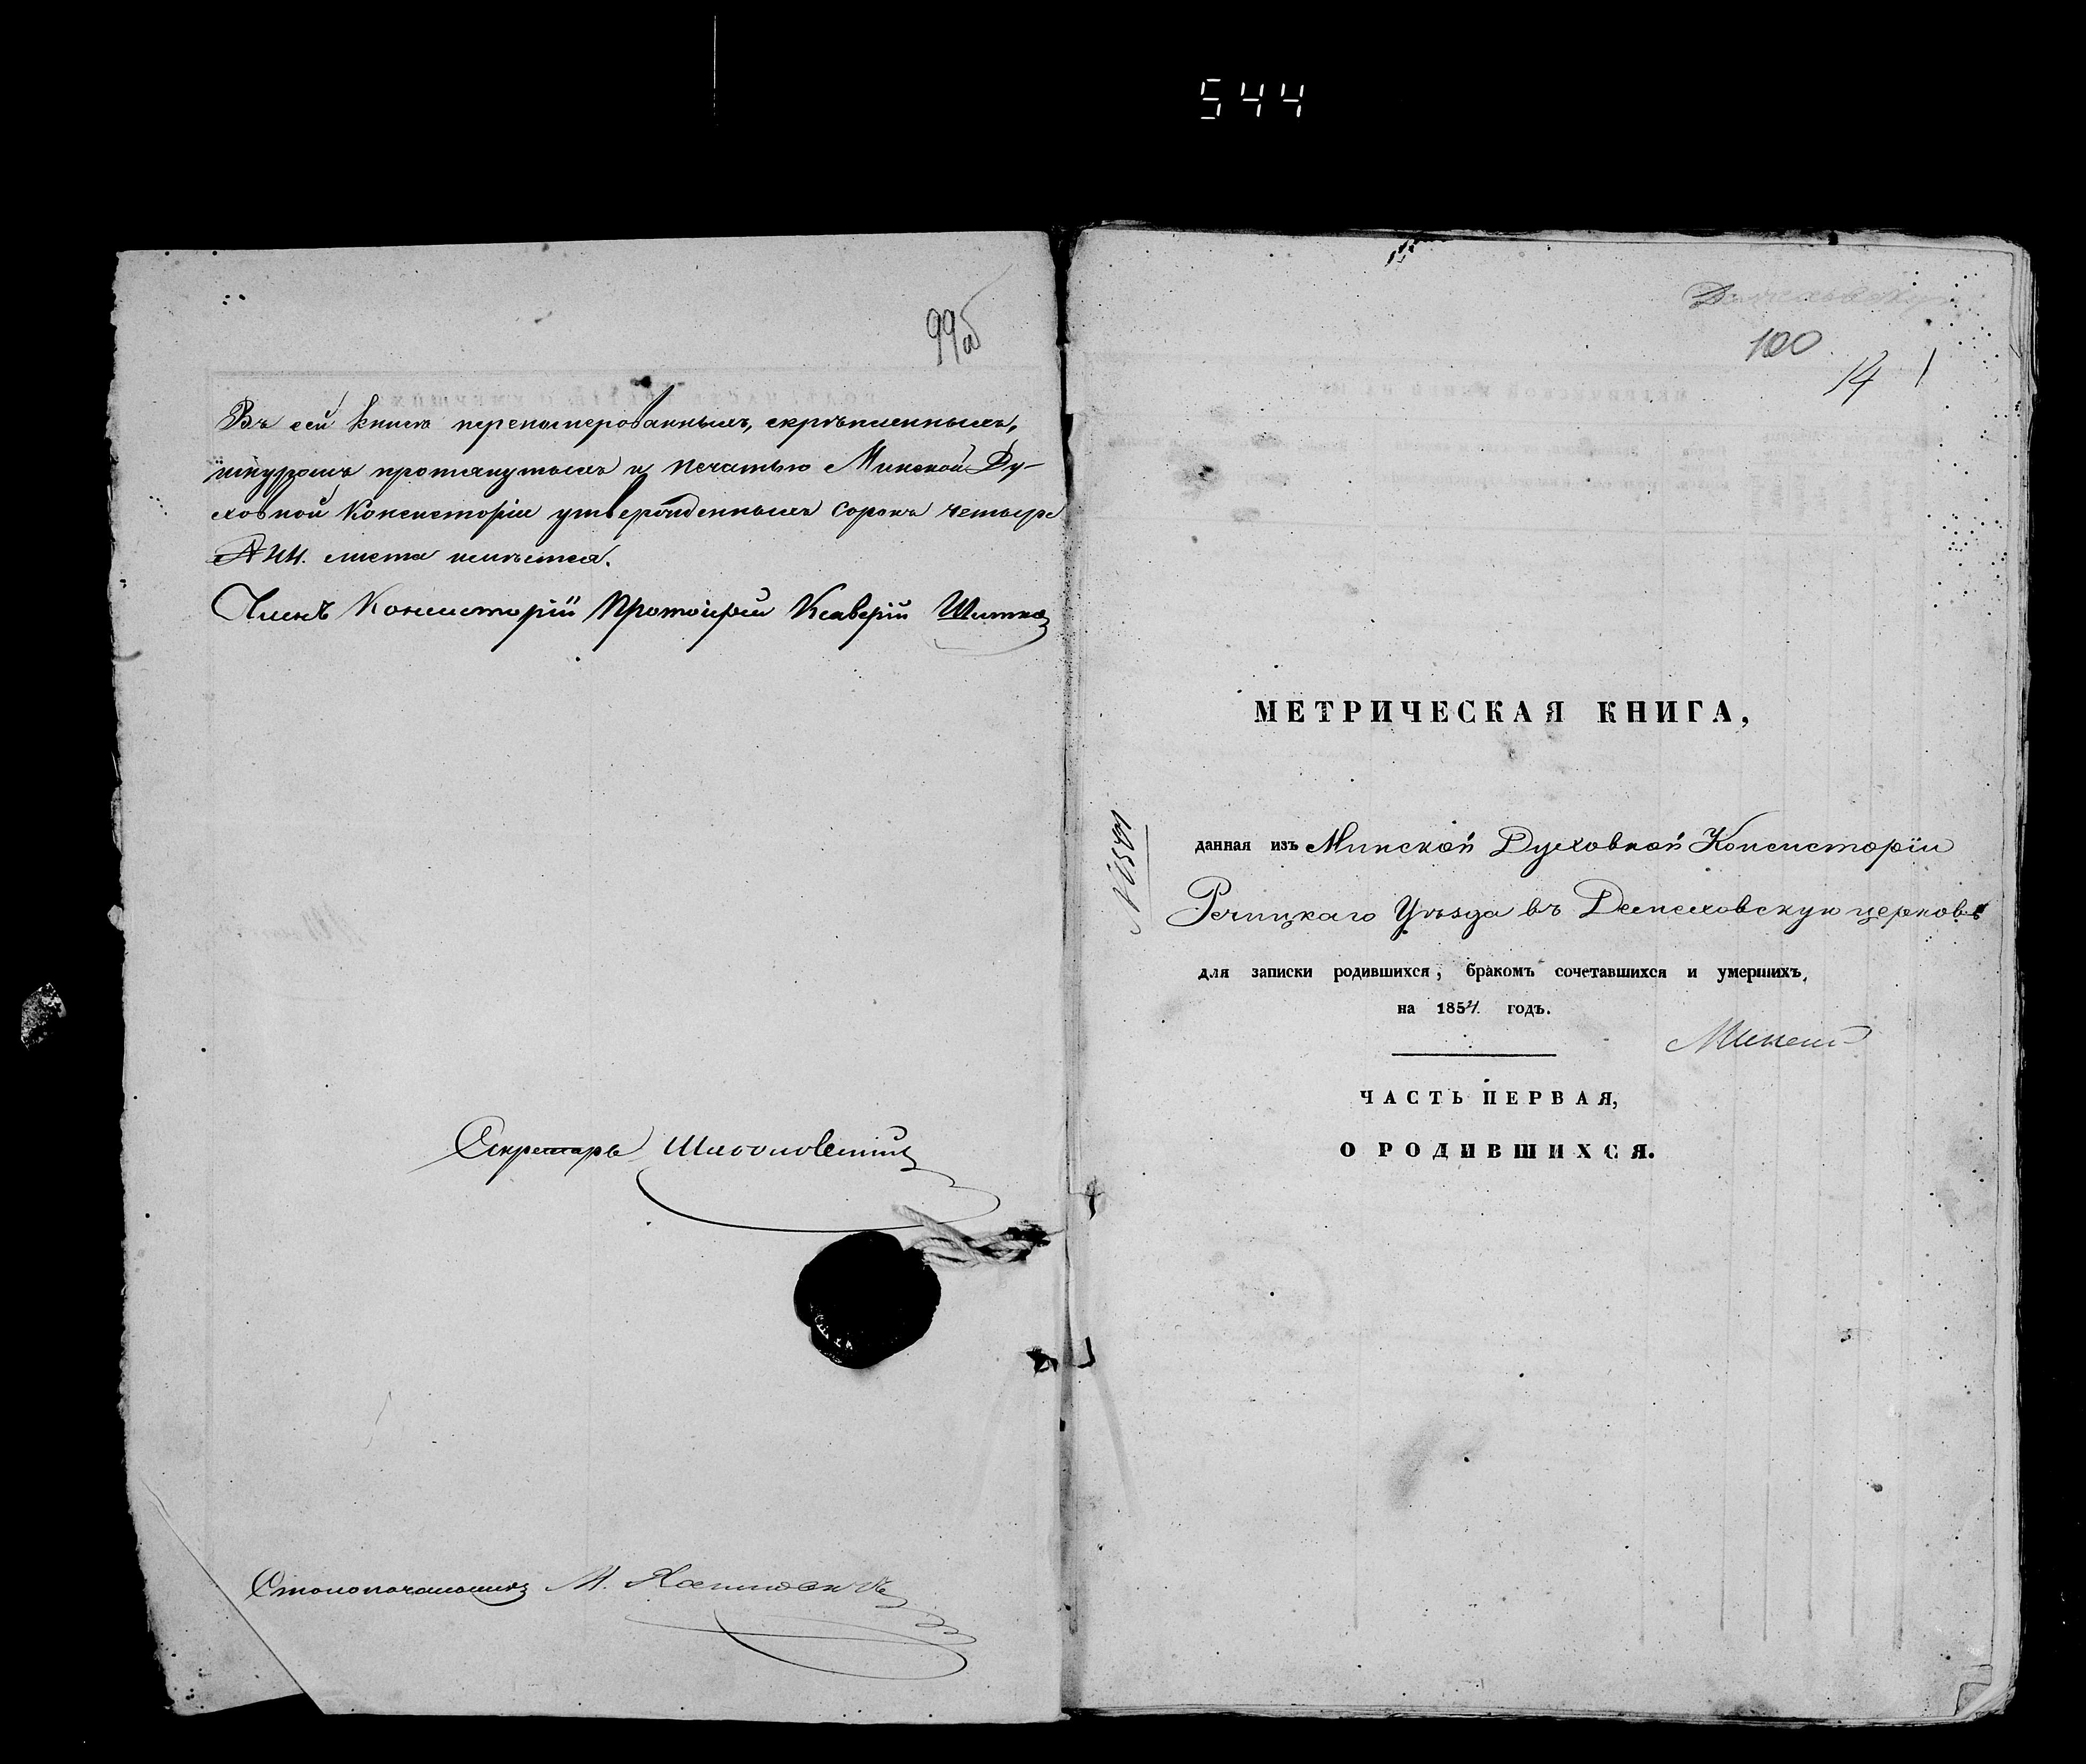 544
99об
Въ сей книгѣ перенумерованныхъ, скрѣпленныхъ,
шнуромъ протянутыхъ и печатью Минской Ду-
ховной Консисторіи утвержденныхъ сорокъ четыре
44. листа имѣется.
Членъ Консисторіи Протоіерей Ксаверій
Секретарь
Столоначальникъ М.
100
14 1
МЕТРИЧЕСКАЯ КНИГА,
данная изъ Минской Духовной Консисторіи
Речицкаго Уѣзда въ Демеховскую церковь
для записки родившихся, бракомъ сочетавшихся и умершихъ,
на 1854 годъ.
ЧАСТЬ ПЕРВАЯ,
О РОДИВШИХСЯ.